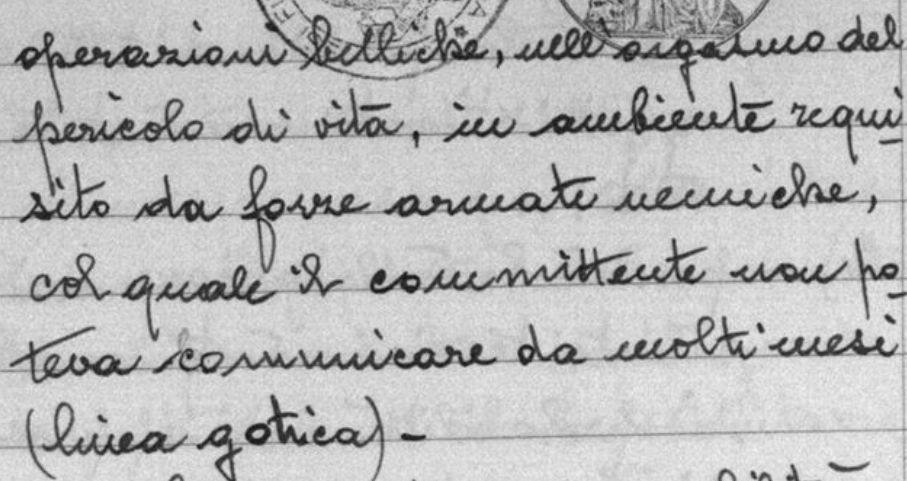 operazioni belliche, nell'orgasmo del
pericolo di vita, in ambiente requi
sito da forze armate nemiche,
col quale il committente non po
teva comunicare da molti mesi
(linea gotica) -